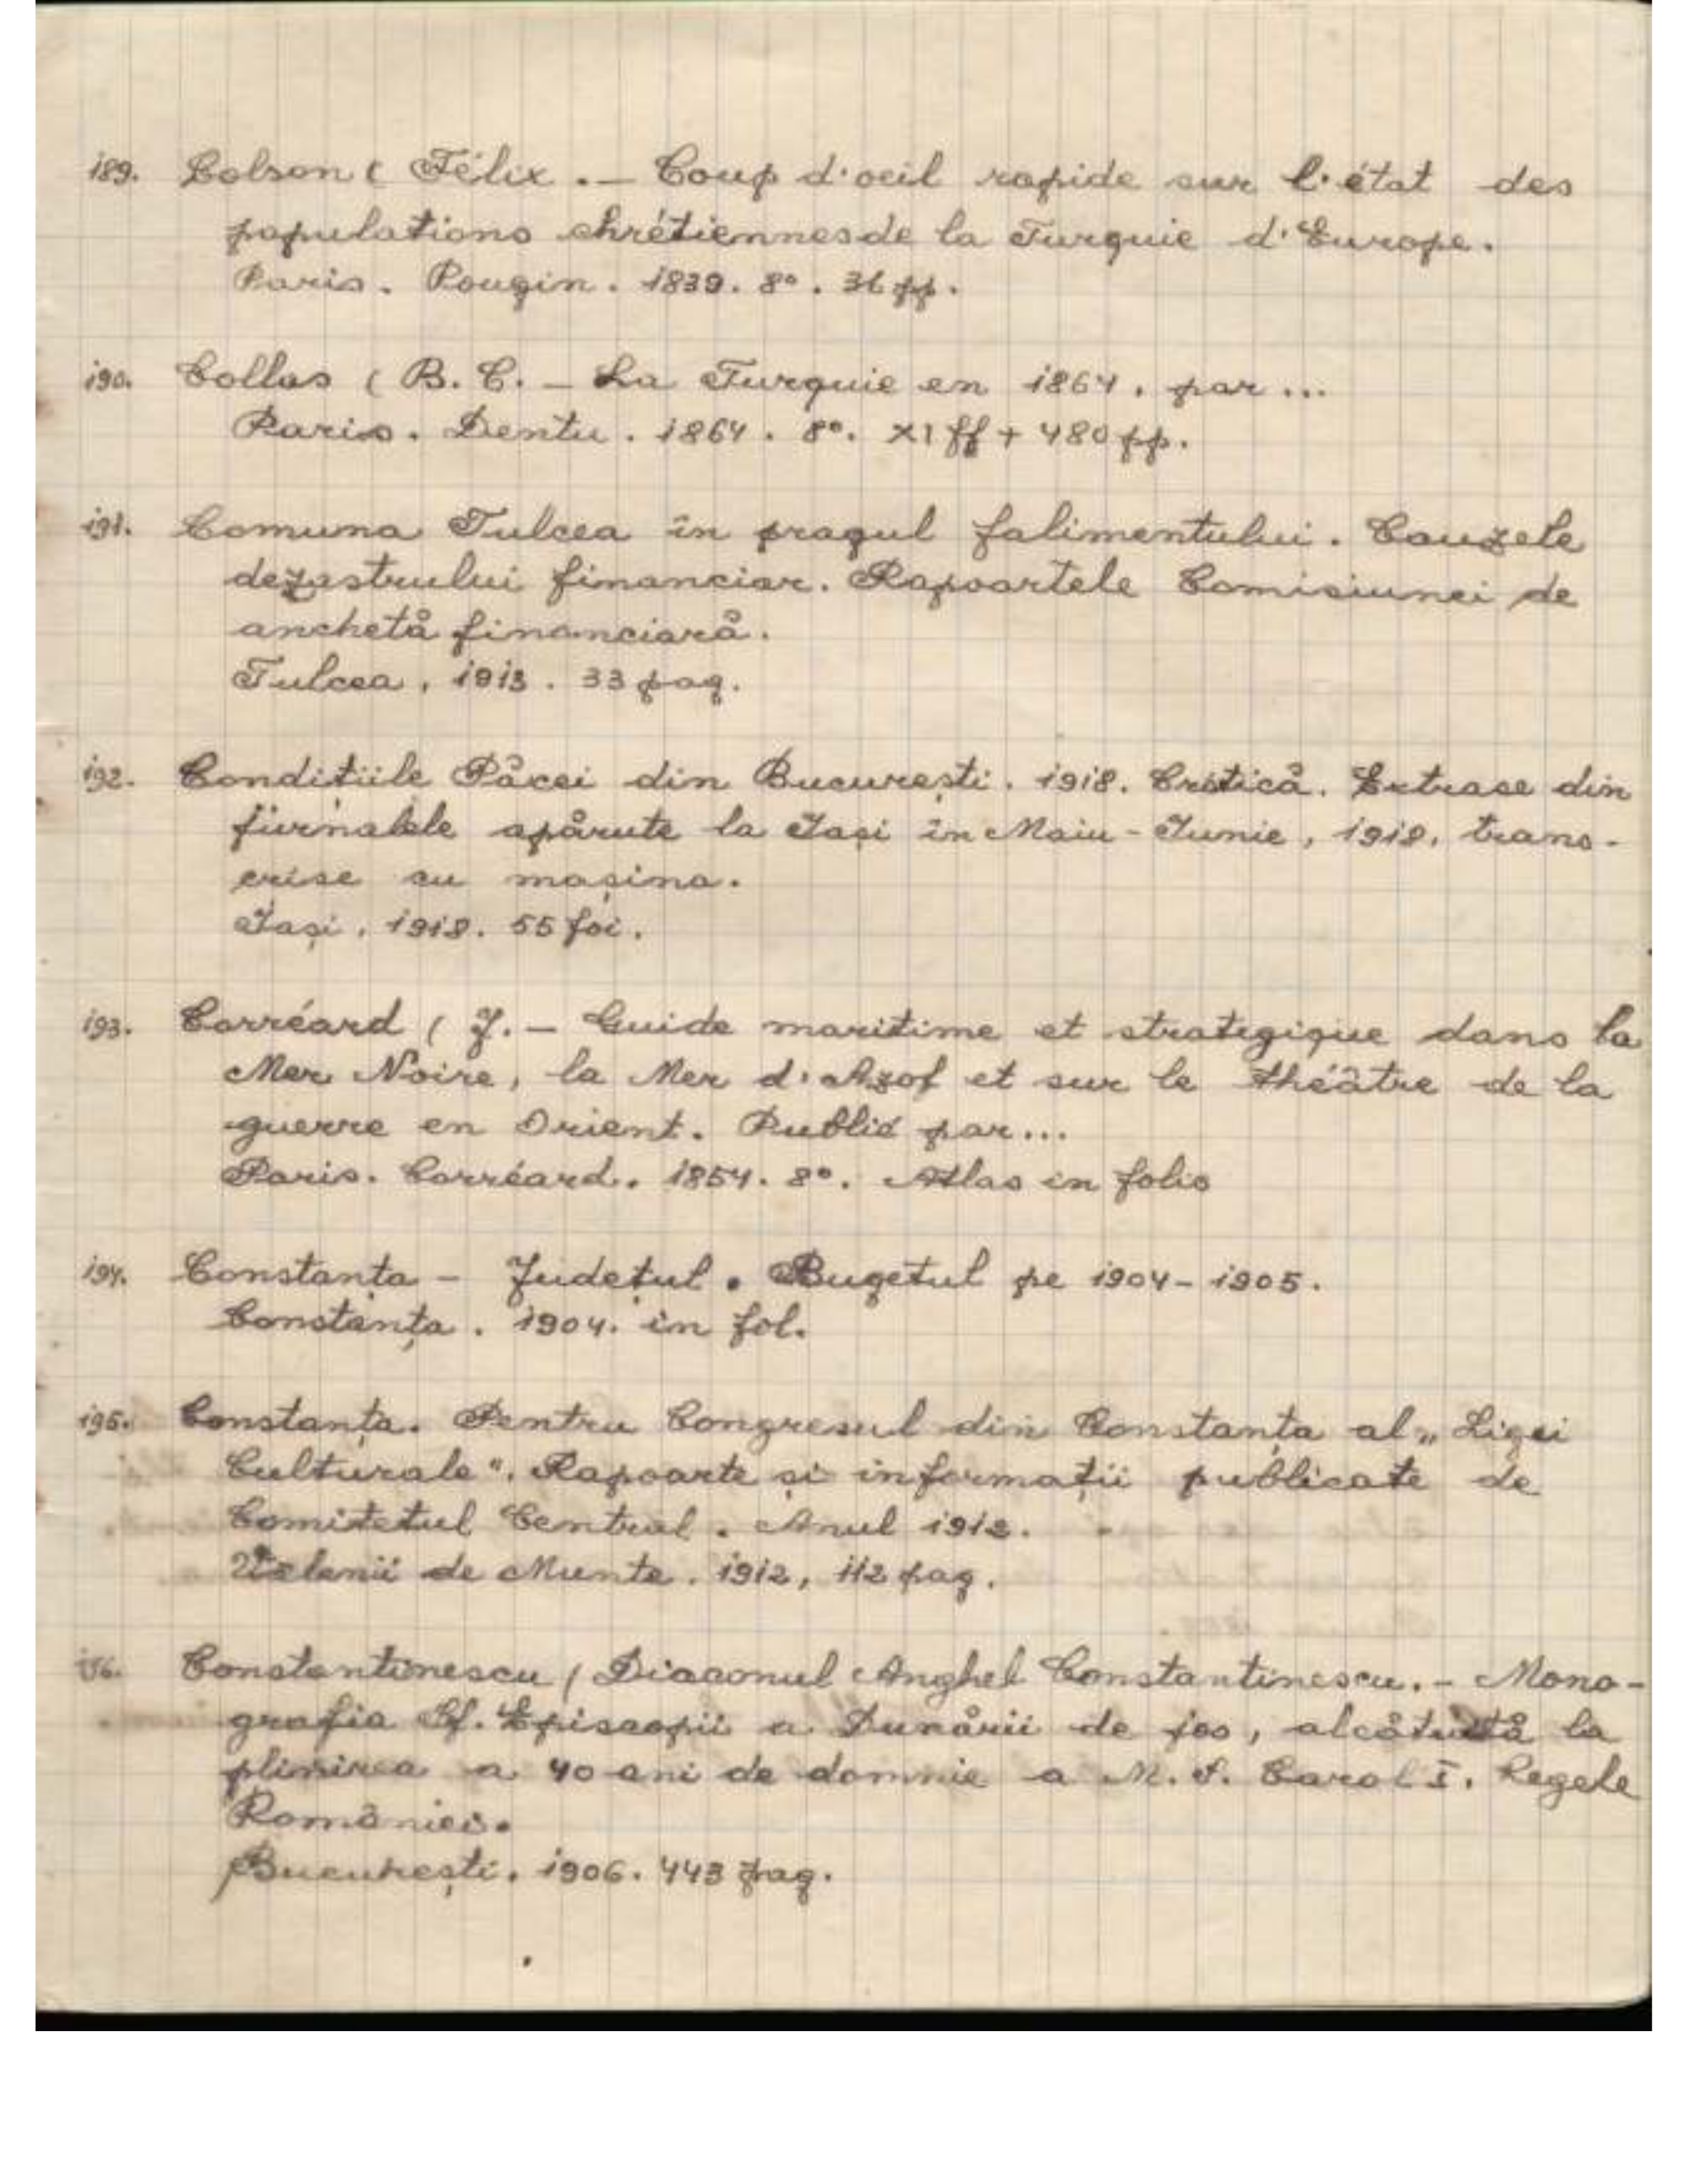 189. Colson ( Félix . — Coup d'oeil rapide sur l'état des
populations chrétiennes de la Turquie d'Europe.
Paris. Pougin. 1839. 8°. 36 pp.
190. Collas ( B. C. — La Turquie en 1864, par ...
Paris. Dentu. 1864. 8°. XI ff + 480 pp.
191. Comuna Tulcea în pragul falimentului. Cauzele
dezastrului financiar. Rapoartele Comisiunei de
anchetă financiară.
Tulcea, 1913. 33 pag.
192. Condițiile Păcei din București. 1918. Critică. Extrase din
jurnalele apărute la Iași în Maiu - Iunie, 1918, trans-
crise cu mașina.
Iași, 1918. 55 foi.
193. Corréard ( J. — Guide maritime et strategique dans la
Mer Noire, la Mer d'Azof et sur le théâtre de la
guerre en Orient. Publié par...
Paris. Corréard. 1854. 8°. Atlas in folio
194. Constanța - Județul. Bugetul pe 1904-1905.
Constanța. 1904. in fol.
195. Constanța. Pentru Congresul din Constanța al „Ligei
Culturale". Rapoarte și informații publicate de
Comitetul Central. Anul 1912.
Vălenii de Munte. 1912, 112 pag.
196. Constantinescu ( Diaconul Anghel Constantinescu. - Mono-
grafia Sf. Episcopii a Dunării de jos, alcătuită la
plinirea a 40 ani de domnie a M. S. Carol I, Regele
României.
București. 1906. 443 pag.